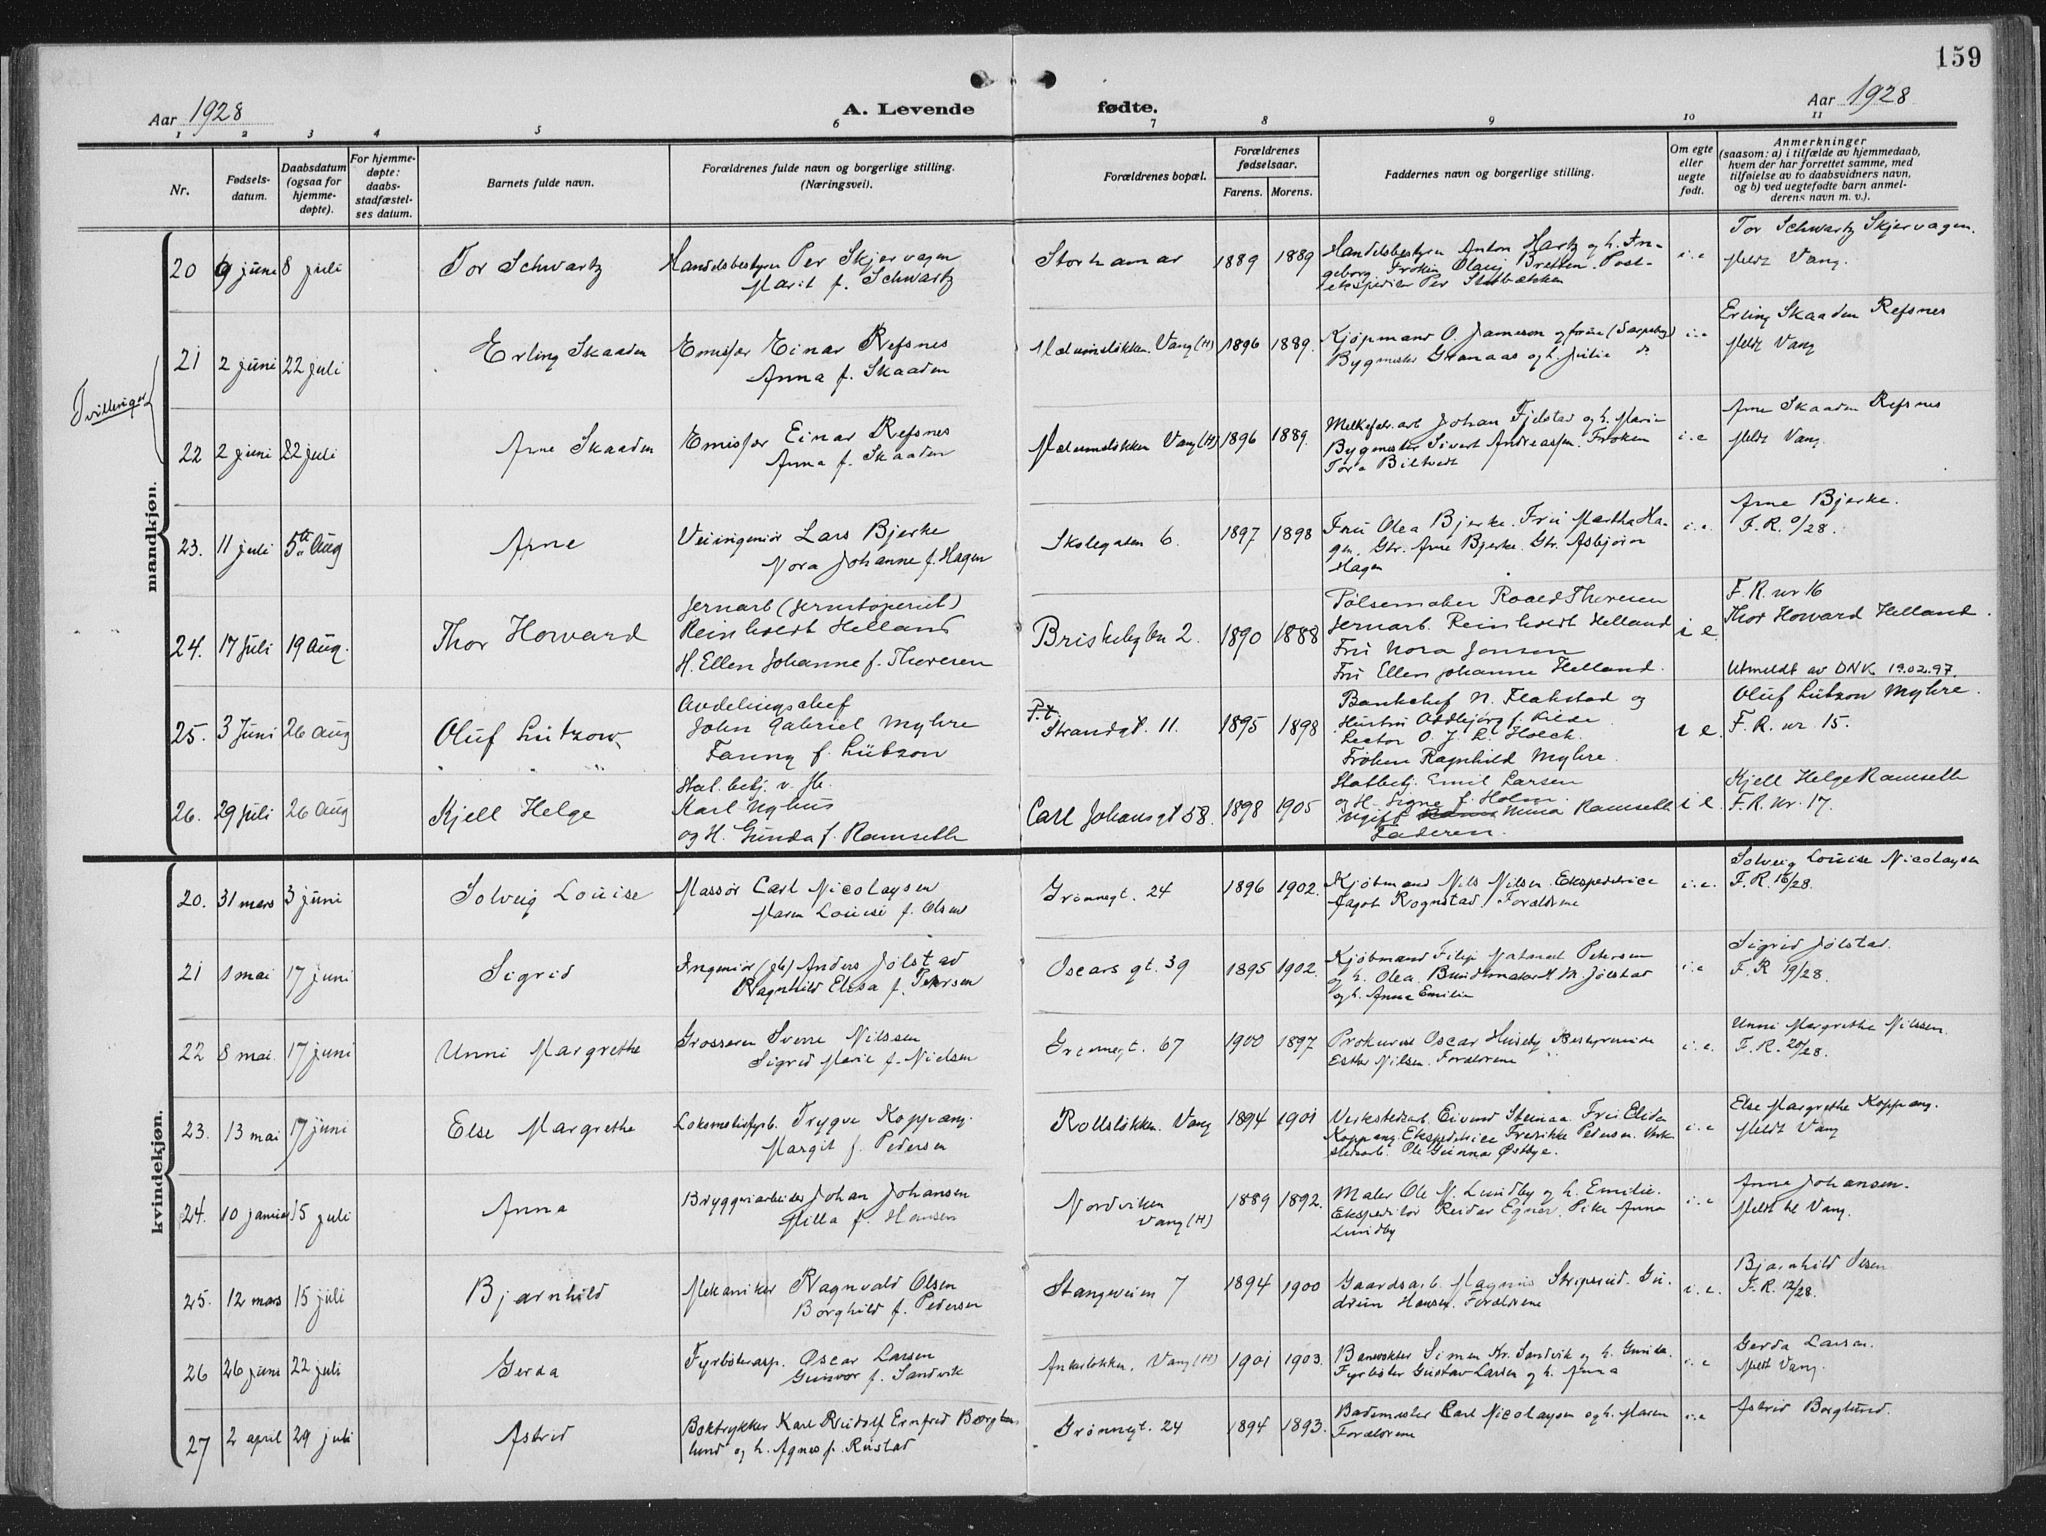 159
Aar 1928
A. Levende
fødte.
Aar 1928
1 2 3 4 5 6 7 8 9 10 11
Nr.
Fødsels-
datum.
Daabsdatum
(ogsaa for
hjemme-
døpte).
For hjemme-
døpte:
daabs-
stadfæstel-
ses datum.
Barnets fulde navn.
Forældrenes fulde navn og borgerlige stilling.
(Næringsvei).
Forældrenes bopæl.
Forældrenes
fødselsaar.
Farens. Morens.
Faddernes navn og borgerlige stilling.
Om egte
eller
uegte
født.
Anmerkninger
(saasom: a) i tilfælde av hjemmedaab,
hvem der har forrettet samme, med
tilføielse av to daabsvidners navn,
og b) ved uegtefødte barn anmel-
derens navn m. v.).
mandkjøn.
20 9 juni 8 juli
Tor Schwartz
Handelsbestyrer Per Skjervagen
Marit f. Schwartz
Storhamar
1889 1889
Handelsbestyrer Anton Hartz og h. In-
geborg. Frøken Olaug Bretten. Post-
ekspeditør Per
i. e
Tor Schwartz Skjervagen.
Meldt Vang.
Tvillinger
21 2 juni 22 juli
Erling Skaaden
Emissær Einar Refsnes
Anna f. Skaaden
Mælumsløkken. Vang (H)
1896 1889.
Kjøpmand O. Jameson og frue (Sarpsborg)
Bygmester Granaas og h. Julie do
i. e
Erling Skaaden Refsnes
Meldt Vang
22 2 juni 22 juli
Arne Skaaden
Emissær Einar Refsnes
Anna f. Skaaden
Mælumsløkken Vang (H)
1896 1889.
Melkefabr. arb Johan Fjelstad og h. Marie
Bygmester Sivert Andreassen. Frøken
Tora Biltvedt
i. e
Arne Skaaden Refsnes
Meldt Vang.
23. 11 juli 5te Aug
Arne
Veiingeniør Lars Bjerke
Nora Johanne f. Hagen
Skolegaten 6.
1897 1898
Fru Olea Bjerke. Fru Martha Ha-
gen. Gtr. Arne Bjerke. Gtr. Asbjørn
Hagen
i. e.
Arne Bjerke.
F. R. 9/28.
24. 17 Juli 19 Aug.
Thor Howard
Jernarb (jernstøperiet)
Reinholdt Helland
H. Ellen Johanne f. Thoresen
Briskebyten 2.
1890 1888
Pølsemaker Roald Thoresen
Jernarb. Reinholdt Helland
Fru Nora Jonsen
Fru Ellen Johanne Helland.
i e.
F. R. nr 16
Thor Howard Helland.
Utmeldt av DNK 19.02.97.
25. 3 Juni 26 Aug
Oluf Lützow
Avdelingschef
John Gabriel Myhre
Fanny f. Lützow
P.t.
Strandgt. 11.
1895 1898
Bankchef N. Flakstad og
Hustru Oddbjørg f. Kilde
Lector O. J. L. Holck.
Frøken Ragnhild Myhre.
i e.
Oluf Lützow Myhre.
F. R. nr 15.
26. 29 Juli 26 Aug
Kjell Helge
Stat. betj. v. Jb.
Karl Nyhus
og H. Gunda f. Ramseth
Carl Johansgt 58.
1898 1905
Statbetj. Emil Larsen
og H. Signe f. Holm.
Ugift Mina Ramseth
Faderen.
i e.
Kjell Helge Ramseth
F. R. nr. 17.
kvindekjøn.
20. 31 mars 3 juni
Solveig Louise
Massør Carl Nicolaysen
Maren Louise f. Olsen
Grønnegt. 24
1896 1902.
Kjøbmand Nils Nilsen. Ekspeditrice
Aagot Rognstad. Forældrene
i. e.
Solveig Louise Nicolaysen
F. R. 16/28.
21 1 mai 17 juni
Sigrid
Ingeniør (Jb) Anders Jølstad
Ragnhild Elisa f. Petersen
Oscars gt. 39
1895 1902.
Kjøbmand Filip Petersen
og h. Olea. Bundtmaker H. M. Jølstad
og h. Anna Emilie
i. e
Sigrid Jølstad.
F. R 19/28.
22 8 mai. 17 juni
Unni Margrethe
Grosserer Sverre Nilssen
Sigrid Marie f. Nielsen
Grønnegt. 67
1900 1897
Prokurist Oscar Huseby Bestyrerinde
Esther Nilsen. Forældrene
i. e.
Unni Margrethe Nilssen.
F. R. 20/28.
23. 13 mai 17 juni
Else Margrethe
Lokomotivfyrb. Trygve Koppang.
Margit f. Pedersen
Rollsløkken. Vang
1894 1901
Verkstedsarb. Eivind Steinaa. Fru Elida
Koppang. Ekspeditrice Fredrikke Pedersen. Verk-
stedsarb. Ole Gunnar Østbye.
i. e
Else Margrethe Koppang.
Meldt Vang
24. 10 januar 15 juli
Anna
Bryggeriarbeider Johan Johansen
Milla f. Hansen
Nordviken
Vang (H)
1889 1892.
Maler Ole N. Lundby og h. Emilie.
Ekspeditør Reidar Egner. Pike Anna
Lundby
i. e
Anna Johansen.
Meldt til Vang.
25. 12 mars 15 juli
Bjarnhild
Mekaniker Ragnvald Olsen
Borghild f. Pedersen
Stangeveien 7
1894 1900
Gaardsarb. Magnus Stripsrud. Gu-
drun Hansen. Forældrene
i. e.
Bjarnhild Olsen
F. R. 12/28.
26 26 juni 22 juli
Gerda
Fyrbøterasp. Oscar Larsen
Gunvor f. Sandvik
Ankerløkken, Vang (H)
1901 1903.
Banevokter Simen Kr. Sandvik og h. Gunda.
Fyrbøter Gustav Larsen og h. Anna
i. e
Gerda Larsen.
Meldt Vang.
27 2 april 29 juli
Astrid
Boktrykker Karl Rudolf Ernfred Borg-
lund og h. Agnes f. Rustad
Grønnegt. 24
1894 1893.
Bademester Carl Nicolaysen og h. Maren
Forældrene
i. e
Astrid Borglund.